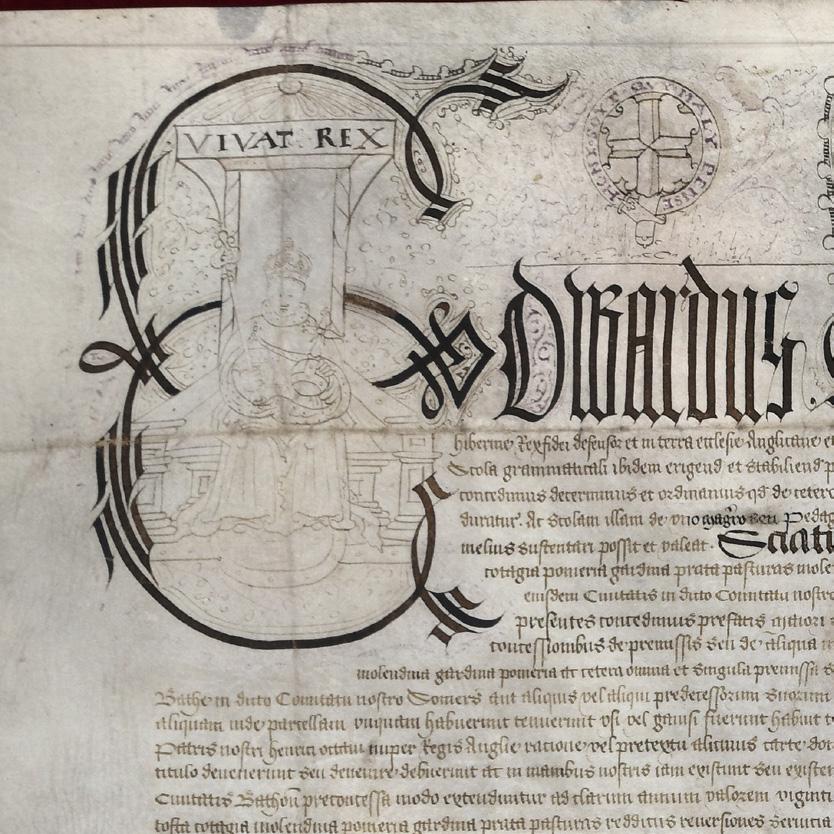 VIVAT REX
HONI SOYT QVI MALY PENSE
EDWardus
hibernie Rex fidei defensor et in terra ecclesie Anglicane et
Scola grammaticali ibidem erigend et stabiliend p
concedimus decernimus et ordinamus qd de cetero
duratur. Ac Scolam illam de uno magro seu Pedag
melius sustentari possit et valeat. Sciati
cotagia pomeria gardina prata pasturas mole
eiusdem Civitatis in dicto Comitatu nostro
presentes concedimus prefatis maiori
concessionibus de premissis seu de aliqua
molendina gardina pomeria ac cetera omnia et singula premissa
Bathe in dicto Comitatu nostro Somers aut aliquis vel aliqui predecessorum suorum
aliquam inde parcellam unquam habuerunt tenuerunt vel gavisi fuerunt habuit
Patris nostri henrici octavi nuper Regis Anglie ratione vel pretextu alicuius carte
titulo devenerunt seu devenire debuerunt ac in manibus nostris iam existunt seu exister
Civitatis Bathon preconcessa modo extenduntur ad clarum annuum valorem viginti
tofta cotagia molendina pomeria gardina prata pasturas redditus reversiones servicia